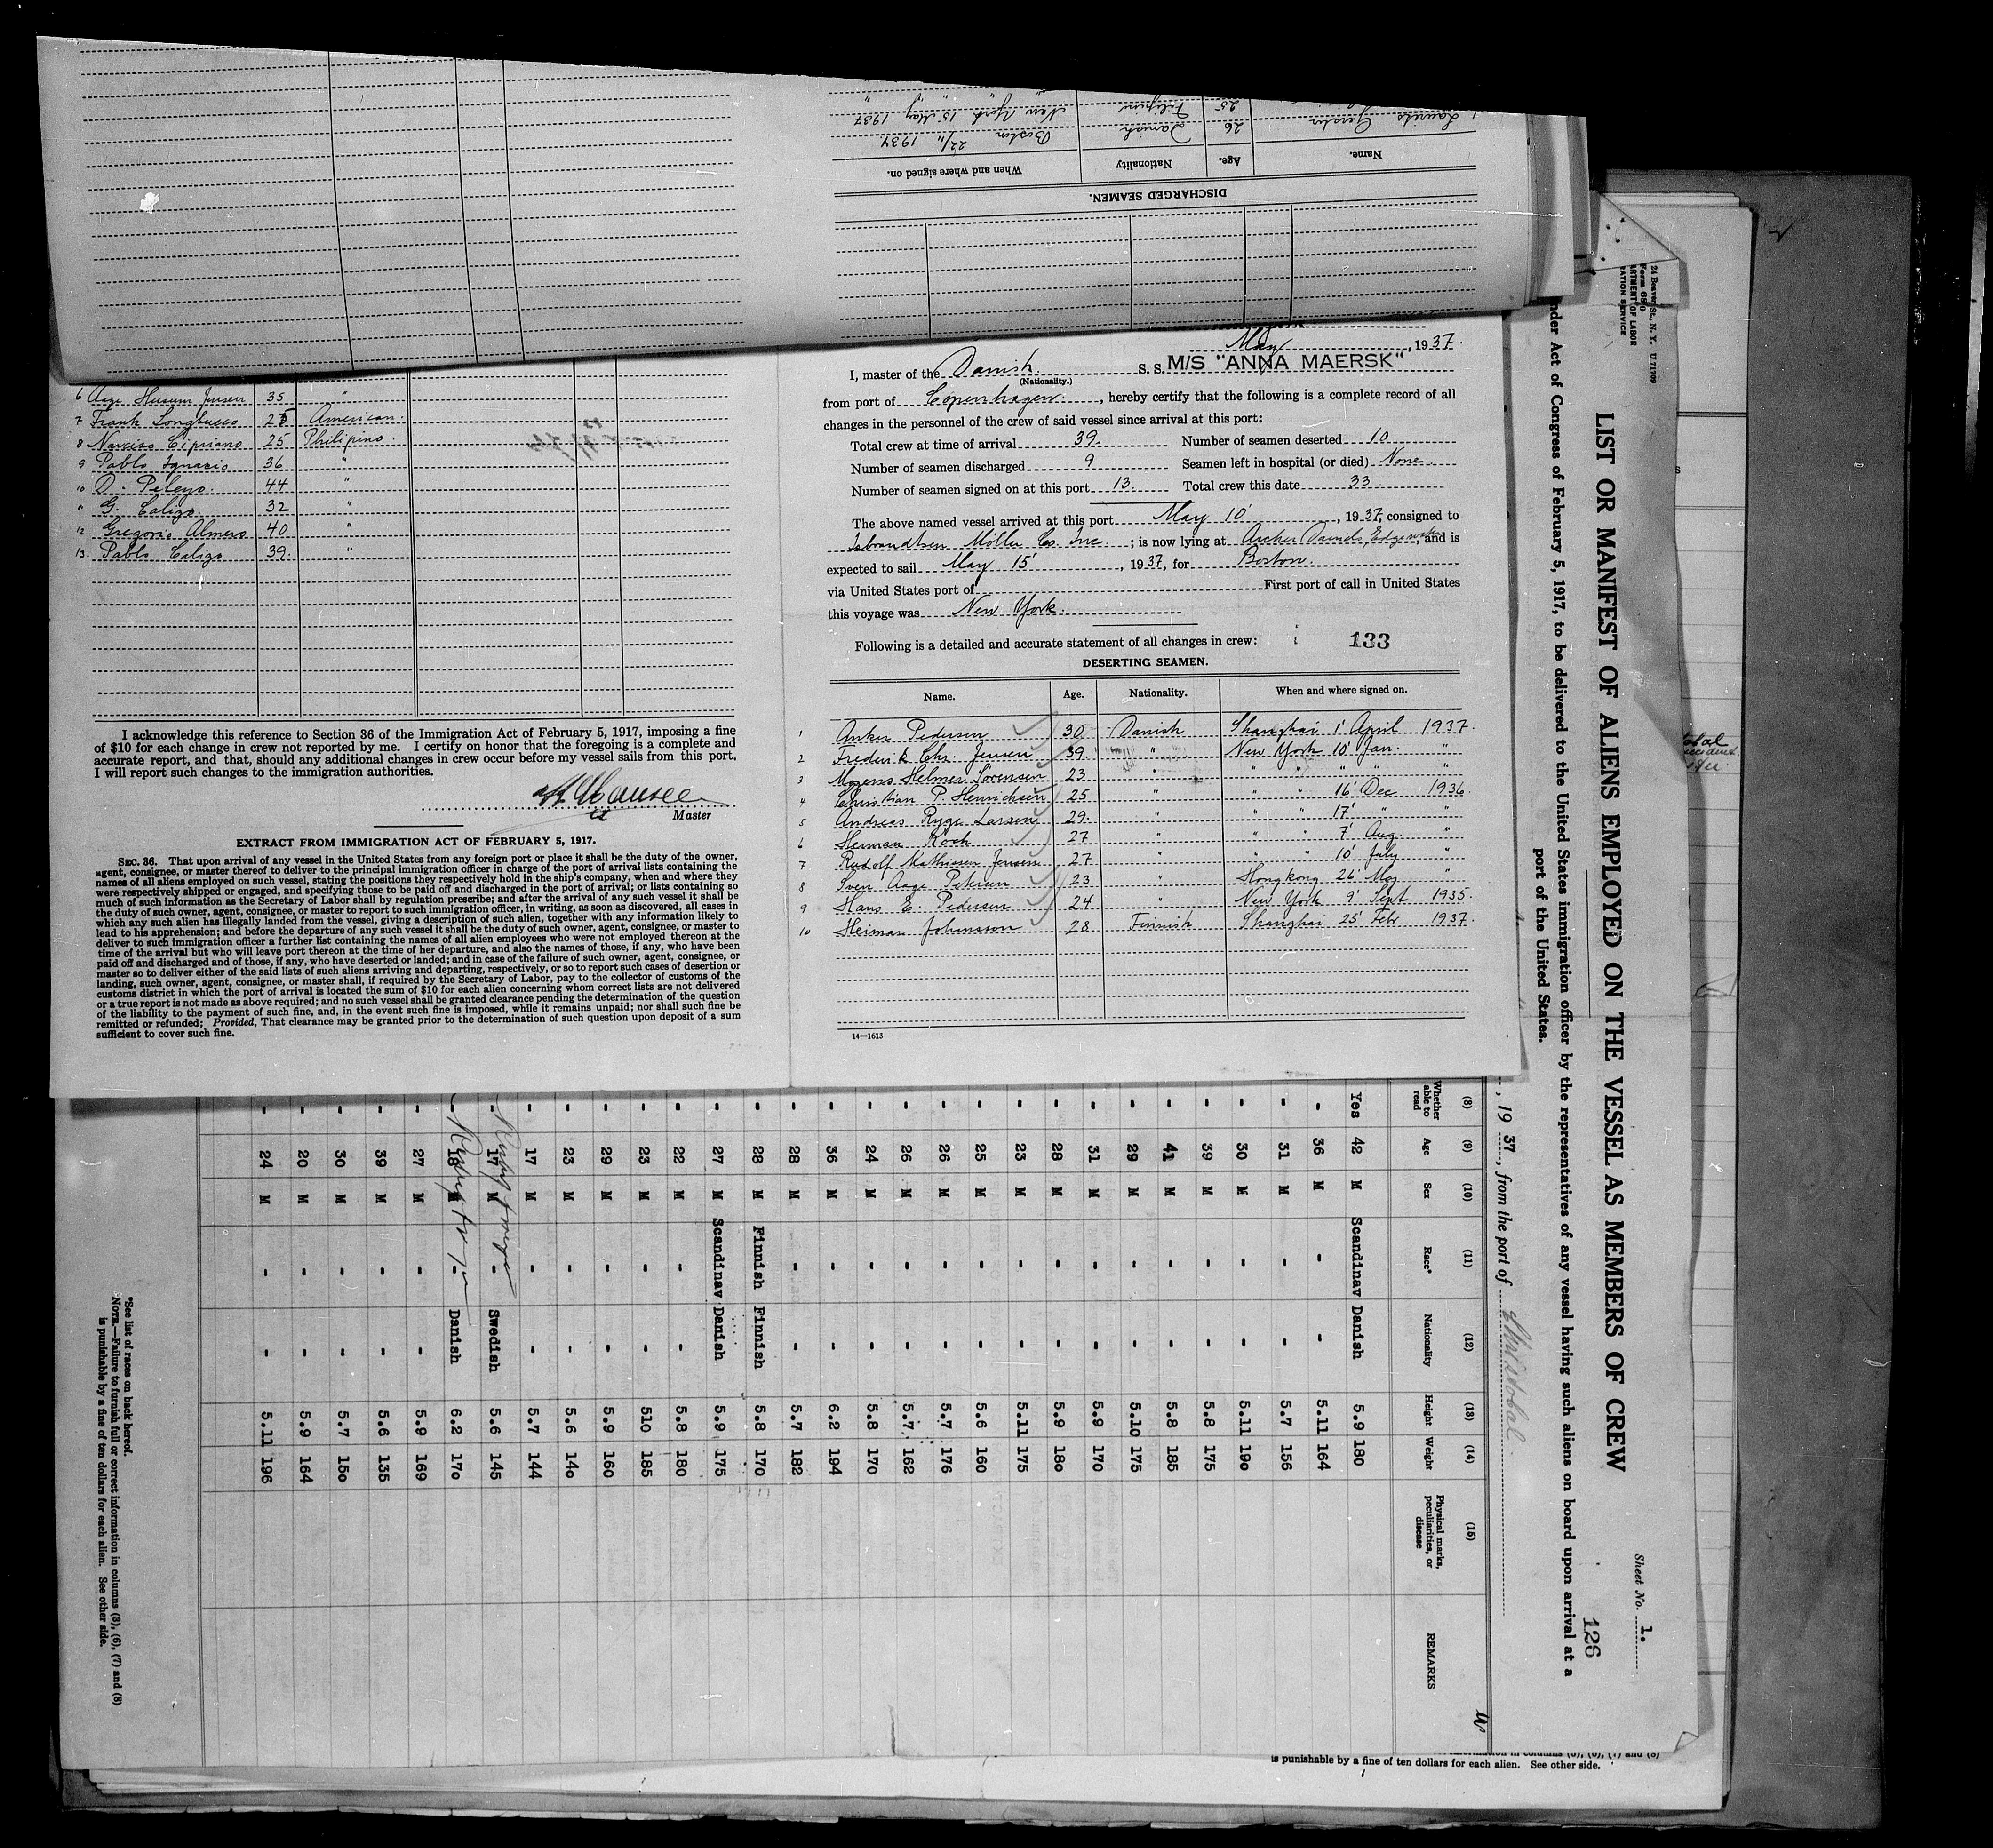 Name. Age. Nationality When and where signed on.
26 Danish Boston 22/11 1934
25 Filipino New York 15 May 1937
DISCHARGED SEAMEN.
6 Aage Husum Jensen 35 "
7 Frank Longbucco 25 American.
8 Narciso Cipriano 25 Philipino.
9 Pablo Ignacio 36 "
10 D. Peleyo. 44 "
11 G. Calizo. 32 "
12 Gregorio Almero 40 "
13. Pablo Calizo 39. "
I acknowledge this reference to Section 36 of the Immigration Act of February 5, 1917, imposing a fine
of $10 for each change in crew not reported by me. I certify on honor that the foregoing is a complete and
accurate report, and that, should any additional changes in crew occur before my vessel sails from this port,
I will report such changes to the immigration authorities.
Master
EXTRACT FROM IMMIGRATION ACT OF FEBRUARY 5, 1917.
SEC. 36. That upon arrival of any vessel in the United States from any foreign port or place it shall be the duty of the owner,
agent, consignee, or master thereof to deliver to the principal immigration officer in charge of the port of arrival lists containing the
names of all aliens employed on such vessel, stating the positions they respectively hold in the ship's company, when and where they
were respectively shipped or engaged, and specifying those to be paid off and discharged in the port of arrival; or lists containing so
much of such information as the Secretary of Labor shall by regulation prescribe; and after the arrival of any such vessel it shall be
the duty of such owner, agent, consignee, or master to report to such immigration officer, in writing, as soon as discovered, all cases in
which any such alien has illegally landed from the vessel, giving a description of such alien, together with any information likely to
lead to his apprehension; and before the departure of any such vessel it shall be the duty of such owner, agent, consignee, or master to
deliver to such immigration officer a further list containing the names of all alien employees who were not employed thereon at the
time of the arrival but who will leave port thereon at the time of her departure, and also the names of those, if any, who have been
paid off and discharged and of those, if any, who have deserted or landed; and in case of the failure of such owner, agent, consignee, or
master so to deliver either of the said lists of such aliens arriving and departing, respectively, or so to report such cases of desertion or
landing, such owner, agent, consignee, or master shall, if required by the Secretary of Labor, pay to the collector of customs of the
customs district in which the port of arrival is located the sum of $10 for each alien concerning whom correct lists are not delivered
or a true report is not made as above required; and no such vessel shall be granted clearance pending the determination of the question
of the liability to the payment of such fine, and, in the event such fine is imposed, while it remains unpaid; nor shall such fine be
remitted or refunded; Provided, That clearance may be granted prior to the determination of such question upon deposit of a sum
sufficient to cover such fine.
May, 1937.
I, master of the Danish S. S. M/S "ANNA MAERSK"
(Nationality.)
from port of Copenhagen, hereby certify that the following is a complete record of all
changes in the personnel of the crew of said vessel since arrival at this port:
Total crew at time of arrival 39. Number of seamen deserted 10
Number of seamen discharged 9 Seamen left in hospital (or died) None.
Number of seamen signed on at this port 13. Total crew this date 33
The above named vessel arrived at this port May 10', 1937, consigned to
Isbrandtsen Möller Co. Inc.; is now lying at Archer Daniels, Edgewater, and is
expected to sail May 15', 1937, for Boston.
via United States port of First port of call in United States
this voyage was New York.
Following is a detailed and accurate statement of all changes in crew: 133
DESERTING SEAMEN.
Name. Age. Nationality. When and where signed on.
1 Anker Pedersen 30 Danish Shanghai 1' April 1937.
2 Frederik Chr Jensen 39 " New York 10' Jan. "
3 Mogens Helmer Sörensen 23 " " " " " "
4 Christian P. Henrichsen 25 " " " 16' Dec 1936
5 Andreas Ryge Larsen 29. " " " 17' " "
6 Herman Koch 27 " " " 7' Aug. "
7 Rudolf Mathiasen Jensen 27 " " " 10' July "
8 Sven Aage Petersen 23 " Hongkong 26' May "
9 Hans E. Pedersen 24 " New York 9' Sept 1935.
10 Heiman Johansson 28 Finnish Shanghai 25' Febr 1937.
14—1613
24 Beaver St., N. Y. U 71709
Form 680
ARTMENT OF LABOR
RATION SERVICE
Sheet No. 1.
126
LIST OR MANIFEST OF ALIENS EMPLOYED ON THE VESSEL AS MEMBERS OF CREW
nder Act of Congress of February 5, 1917, to be delivered to the United States immigration officer by the representatives of any vessel having such aliens on board upon arrival at a
port of the United States.
, 19 37, from the port of Christobal.
(8) (9) (10) (11) (12) (13) (14) (15)
Whether able to read Age Sex Race* Nationality Height Weight Physical marks, peculiarities, or disease REMARKS
Yes 42 M Scandinav Danish 5.9 180
- 36 M - - 5.11 164
- 31 M - - 5.7 156
- 30 M - - 5.11 190
- 39 M - - 5.8 175
- 41 M - - 5.8 185
- 29 M - - 5.10 175
- 31 M - - 5.9 170
- 28 M - - 5.9 180
- 23 M - - 5.11 175
- 25 M - - 5.6 160
- 26 M - - 5.7 176
- 26 M - - 5.7 162
- 24 M - - 5.8 170
- 36 M - - 6.2 194
- 28 M - - 5.7 182
- 28 M Finnish Finnish 5.8 170
- 27 M Scandinav Danish 5.9 175
- 22 M - - 5.8 180
- 23 M - - 510 185
- 29 M - - 5.9 160
- 23 M - - 5.6 140
- 17 M - - 5.7 144
- 17 M - Swedish 5.6 145
- 18 M - Danish 6.2 170
- 27 M - - 5.9 169
- 39 M - - 5.6 135
- 30 M - - 5.7 150
- 20 M - - 5.9 164
- 24 M - - 5.11 196
*See list of races on back hereof.
NOTE.—Failure to furnish full or correct information in columns (3), (6), (7) and (8)
is punishable by a fine of ten dollars for each alien. See other side.
is punishable by a fine of ten dollars for each alien. See other side.